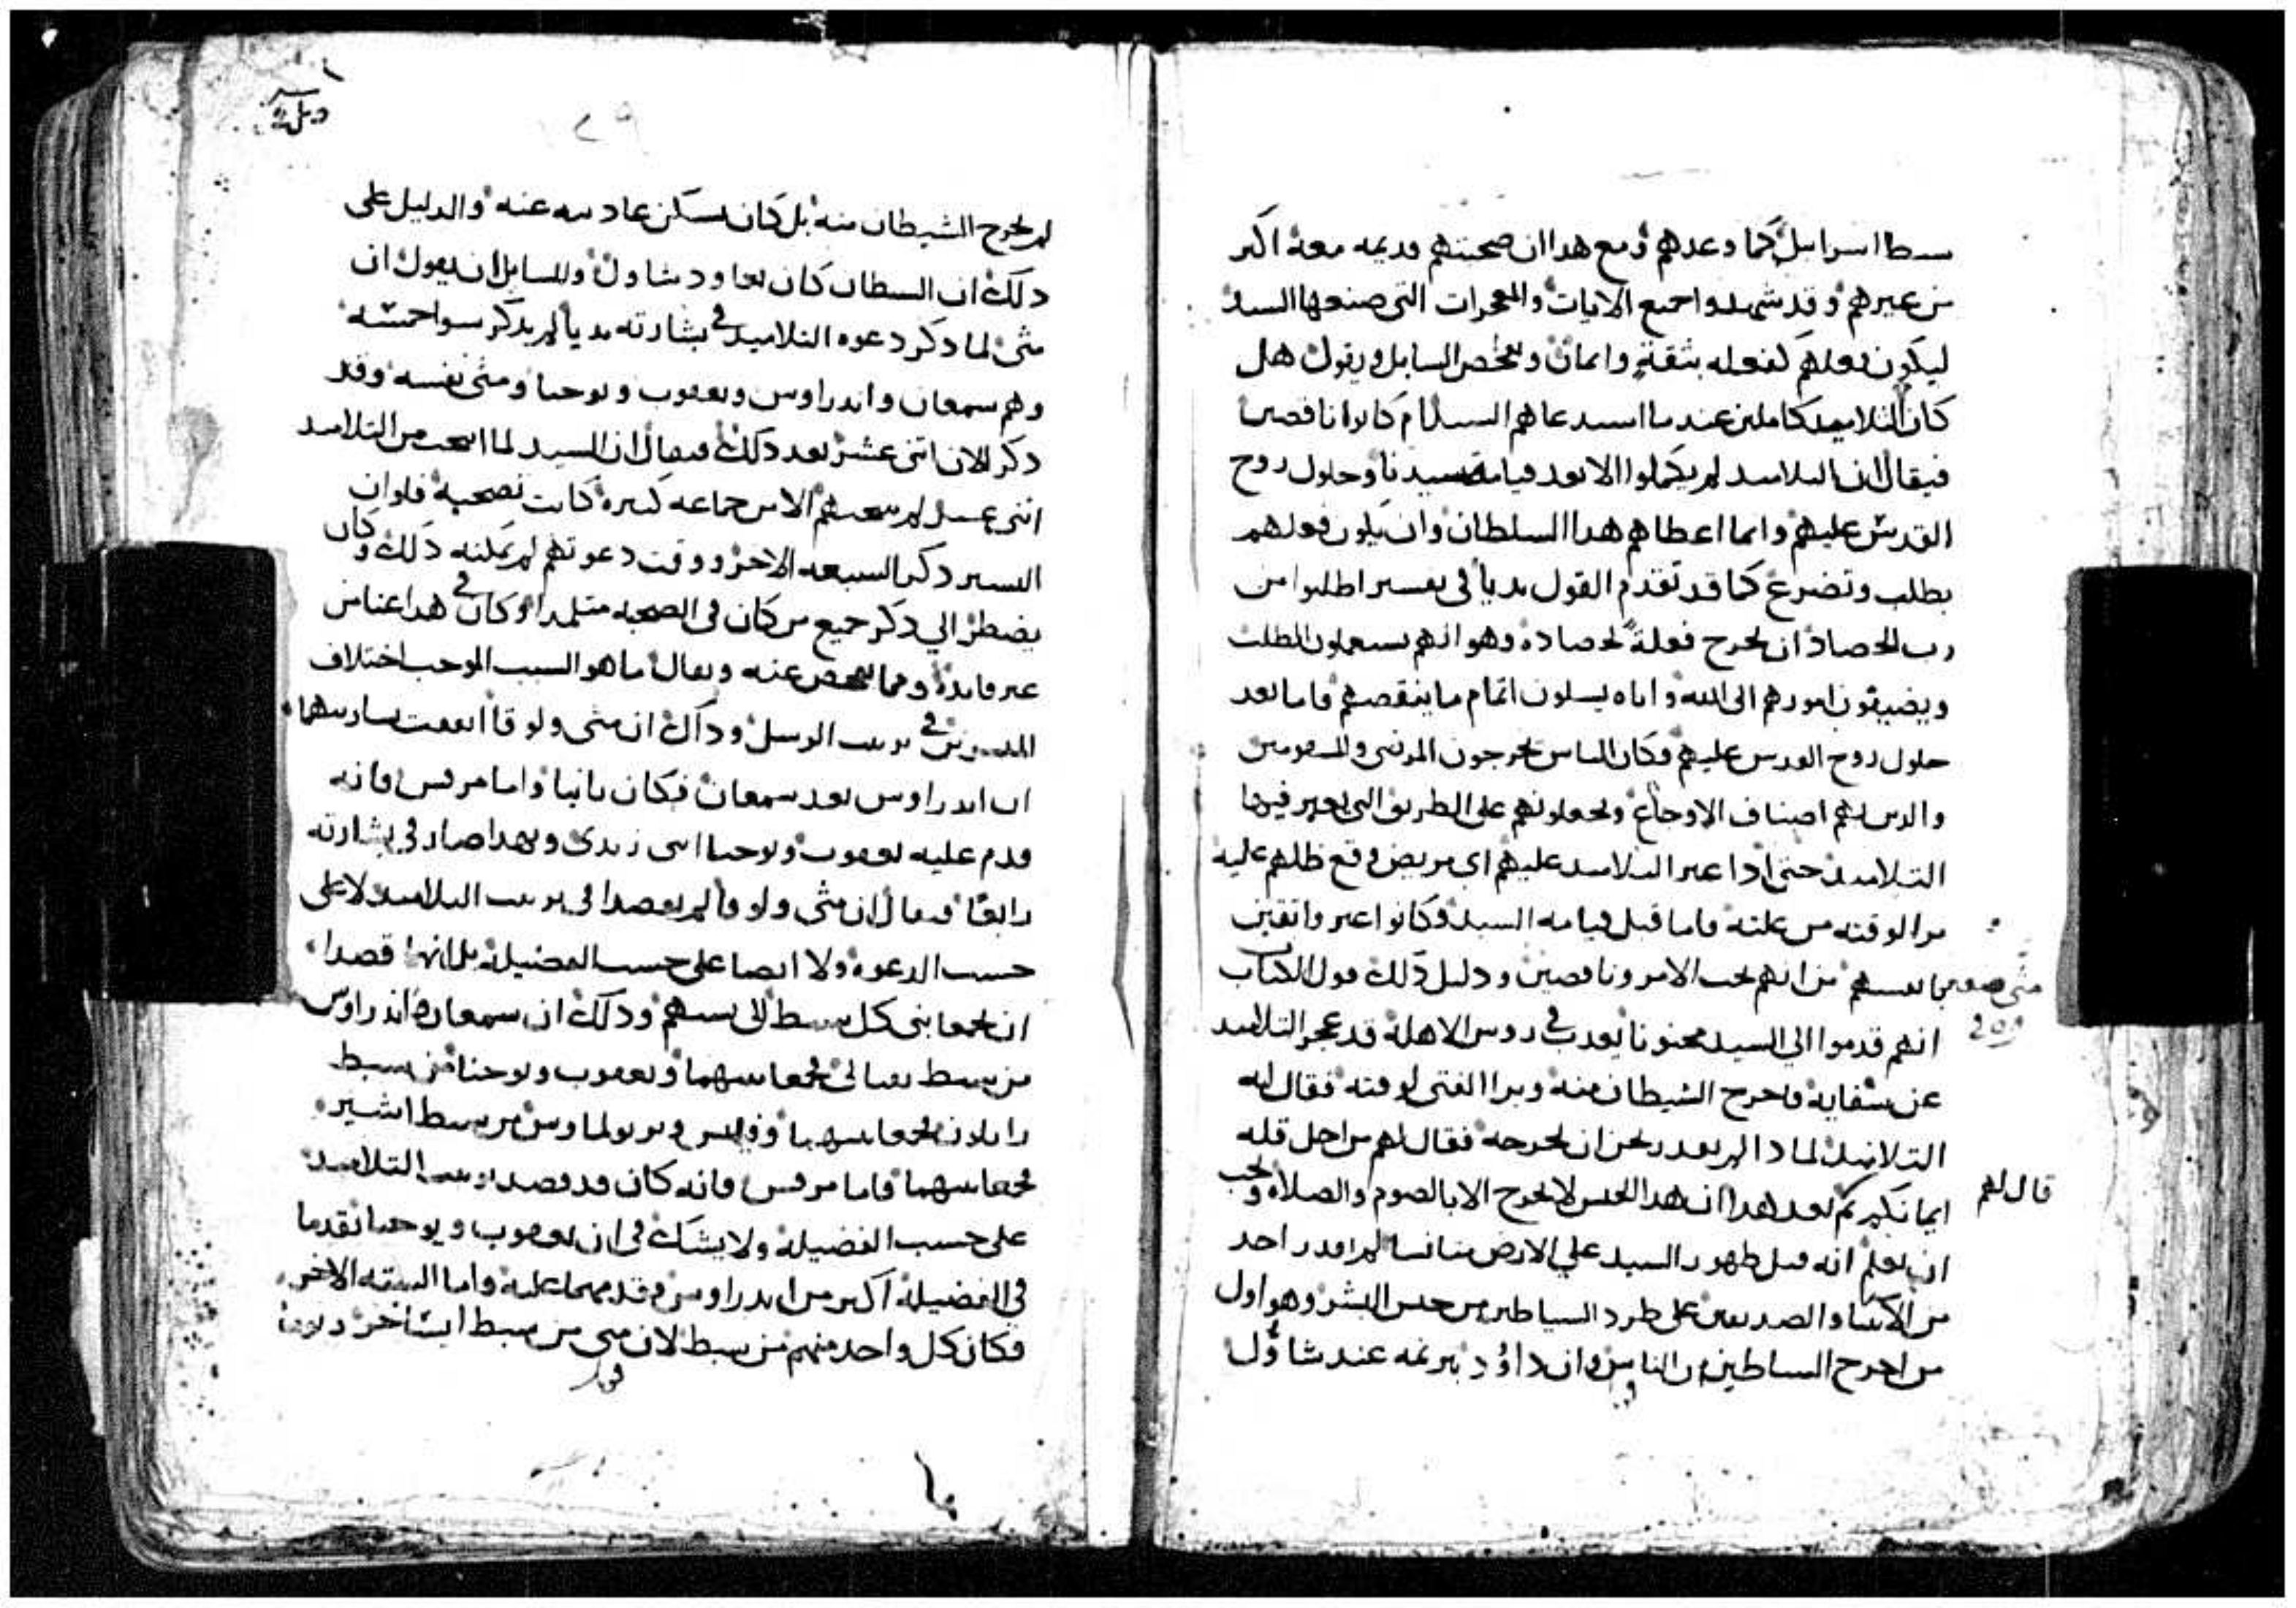 سبط اسرايل كما وعدهم ومع هدا ان صحبتهم قديمه معه اكبر
من غيرهم وقد شهدوا جميع الايات والمعجزات التى صنعها السيد
ليكون فعلهم لفعله بثقة وايمان ويفحص السايل ويقول هل
كان التلاميد كاملين عند ما استدعاهم السيد ام كانوا ناقصين
فيقال ان التلاميد لم يكملوا الا بعد قيامة سيدنا وحلول روح
القدس عليهم وانما اعطاهم هدا السلطان وان يكون فعلهم
بطلب وتضرع كما قد تقدم القول بديا فى تفسير اطلبوا من
رب الحصاد ان يخرج فعلة لحصاده وهو انهم يستعملون الطلب
ويضيفون امورهم الى الله واياه يسلون اتمام ما ينقصهم فاما بعد
حلول روح القدس عليهم فكان الناس يخرجون المرضى والمسقومين
والدين بهم اصناف الاوجاع ويجعلونهم على الطريق التى يعبر فيها
التلاميد حتى ادا عبر التلاميد عليهم اى مريض وقع ظلهم عليه
برا لوقته من علته فاما قبل قيامه السيد فكانوا غير واثقين
بما نفسهم من انهم تحت الامر وناقصين ودليل دلك قول الكتاب
متى
انهم قدموا الى السيد مجنونا يعدب فى روس الاهلة قد عجز التلاميد
عن شفايه فاخرج الشيطان منه وبرا الفتى لوقته فقال له
التلاميد لما دا لم نقدر نحن ان نخرجه فقال لهم من اجل قله
ايمانكم ثم بعد هدا ان هدا الجنس لا يخرج الا بالصوم والصلاه ويجب
قال لهم
ان نعلم انه قبل ظهور السيد على الارض متانسا لم يقدر احد
من الانبيا والصديقين على طرد الشياطين من جنس البشر وهو اول
من اخرج الشياطين من الناس وان داوود بترنمه عند شاول
لم يخرج الشيطان منه بل كان يسكن عاديته عنه والدليل على
دلك ان الشيطان كان يعاود شاول وللسايل ان يقول ان
متى لما دكر دعوه التلاميد فى بشارته بديا لم يدكر سوا خمسه
وهم سمعان واندراوس ويعقوب ويوحنا ومتى نفسه وقد
دكر الان اتنى عشر بعد دلك فيقال ان السيد لما انتخب من التلاميد
اتنى عشر لم ينتخبهم الا من جماعه كثيره كانت تصحبه فلو ان
البشير دكر السبعه الاخر ووقت دعوتهم لم يمكنه دلك وكان
يضطر الى دكر جميع من كان فى الصحبه متلمدا وكان فى هدا عنا من
غير فايدة ومما يفحص عنه ويقال ما هو السبب الموجب اختلاف
المبشرين فى ترتيب الرسل وداك ان متى ولوقا اتفقت بشارتهما
ان اندراوس بعد سمعان فكان تانيا واما مرقس فانه
قدم عليه يعقوب ويوحنا ابنى زبدى وبهدا صار فى بشارته
رابعا فيقال ان متى ولوقا لم يقصدا فى ترتيب التلاميد لا على
حسب الدعوه ولا ايضا على حسب الفضيلة بل انهما قصدا
ان يجمعا بنى كل سبط الى سبطهم ودلك ان سمعان واندراوس
من سبط نفتالى فجمعا بينهما ويعقوب ويوحنا من سبط
زابلون فجمعا بينهما وفيلبس وبرتولماوس من سبط اشير
فجمعا بينهما فاما مرقس فانه كان قد قصد ترتيب التلاميد
على حسب الفضيلة ولا يشك فى ان يعقوب ويوحنا تقدما
فى الفضيلة اكبر من اندراوس فقدمهما عليه واما السته الاخر
فكان كل واحد منهم من سبط لان متى من سبط ايساخر